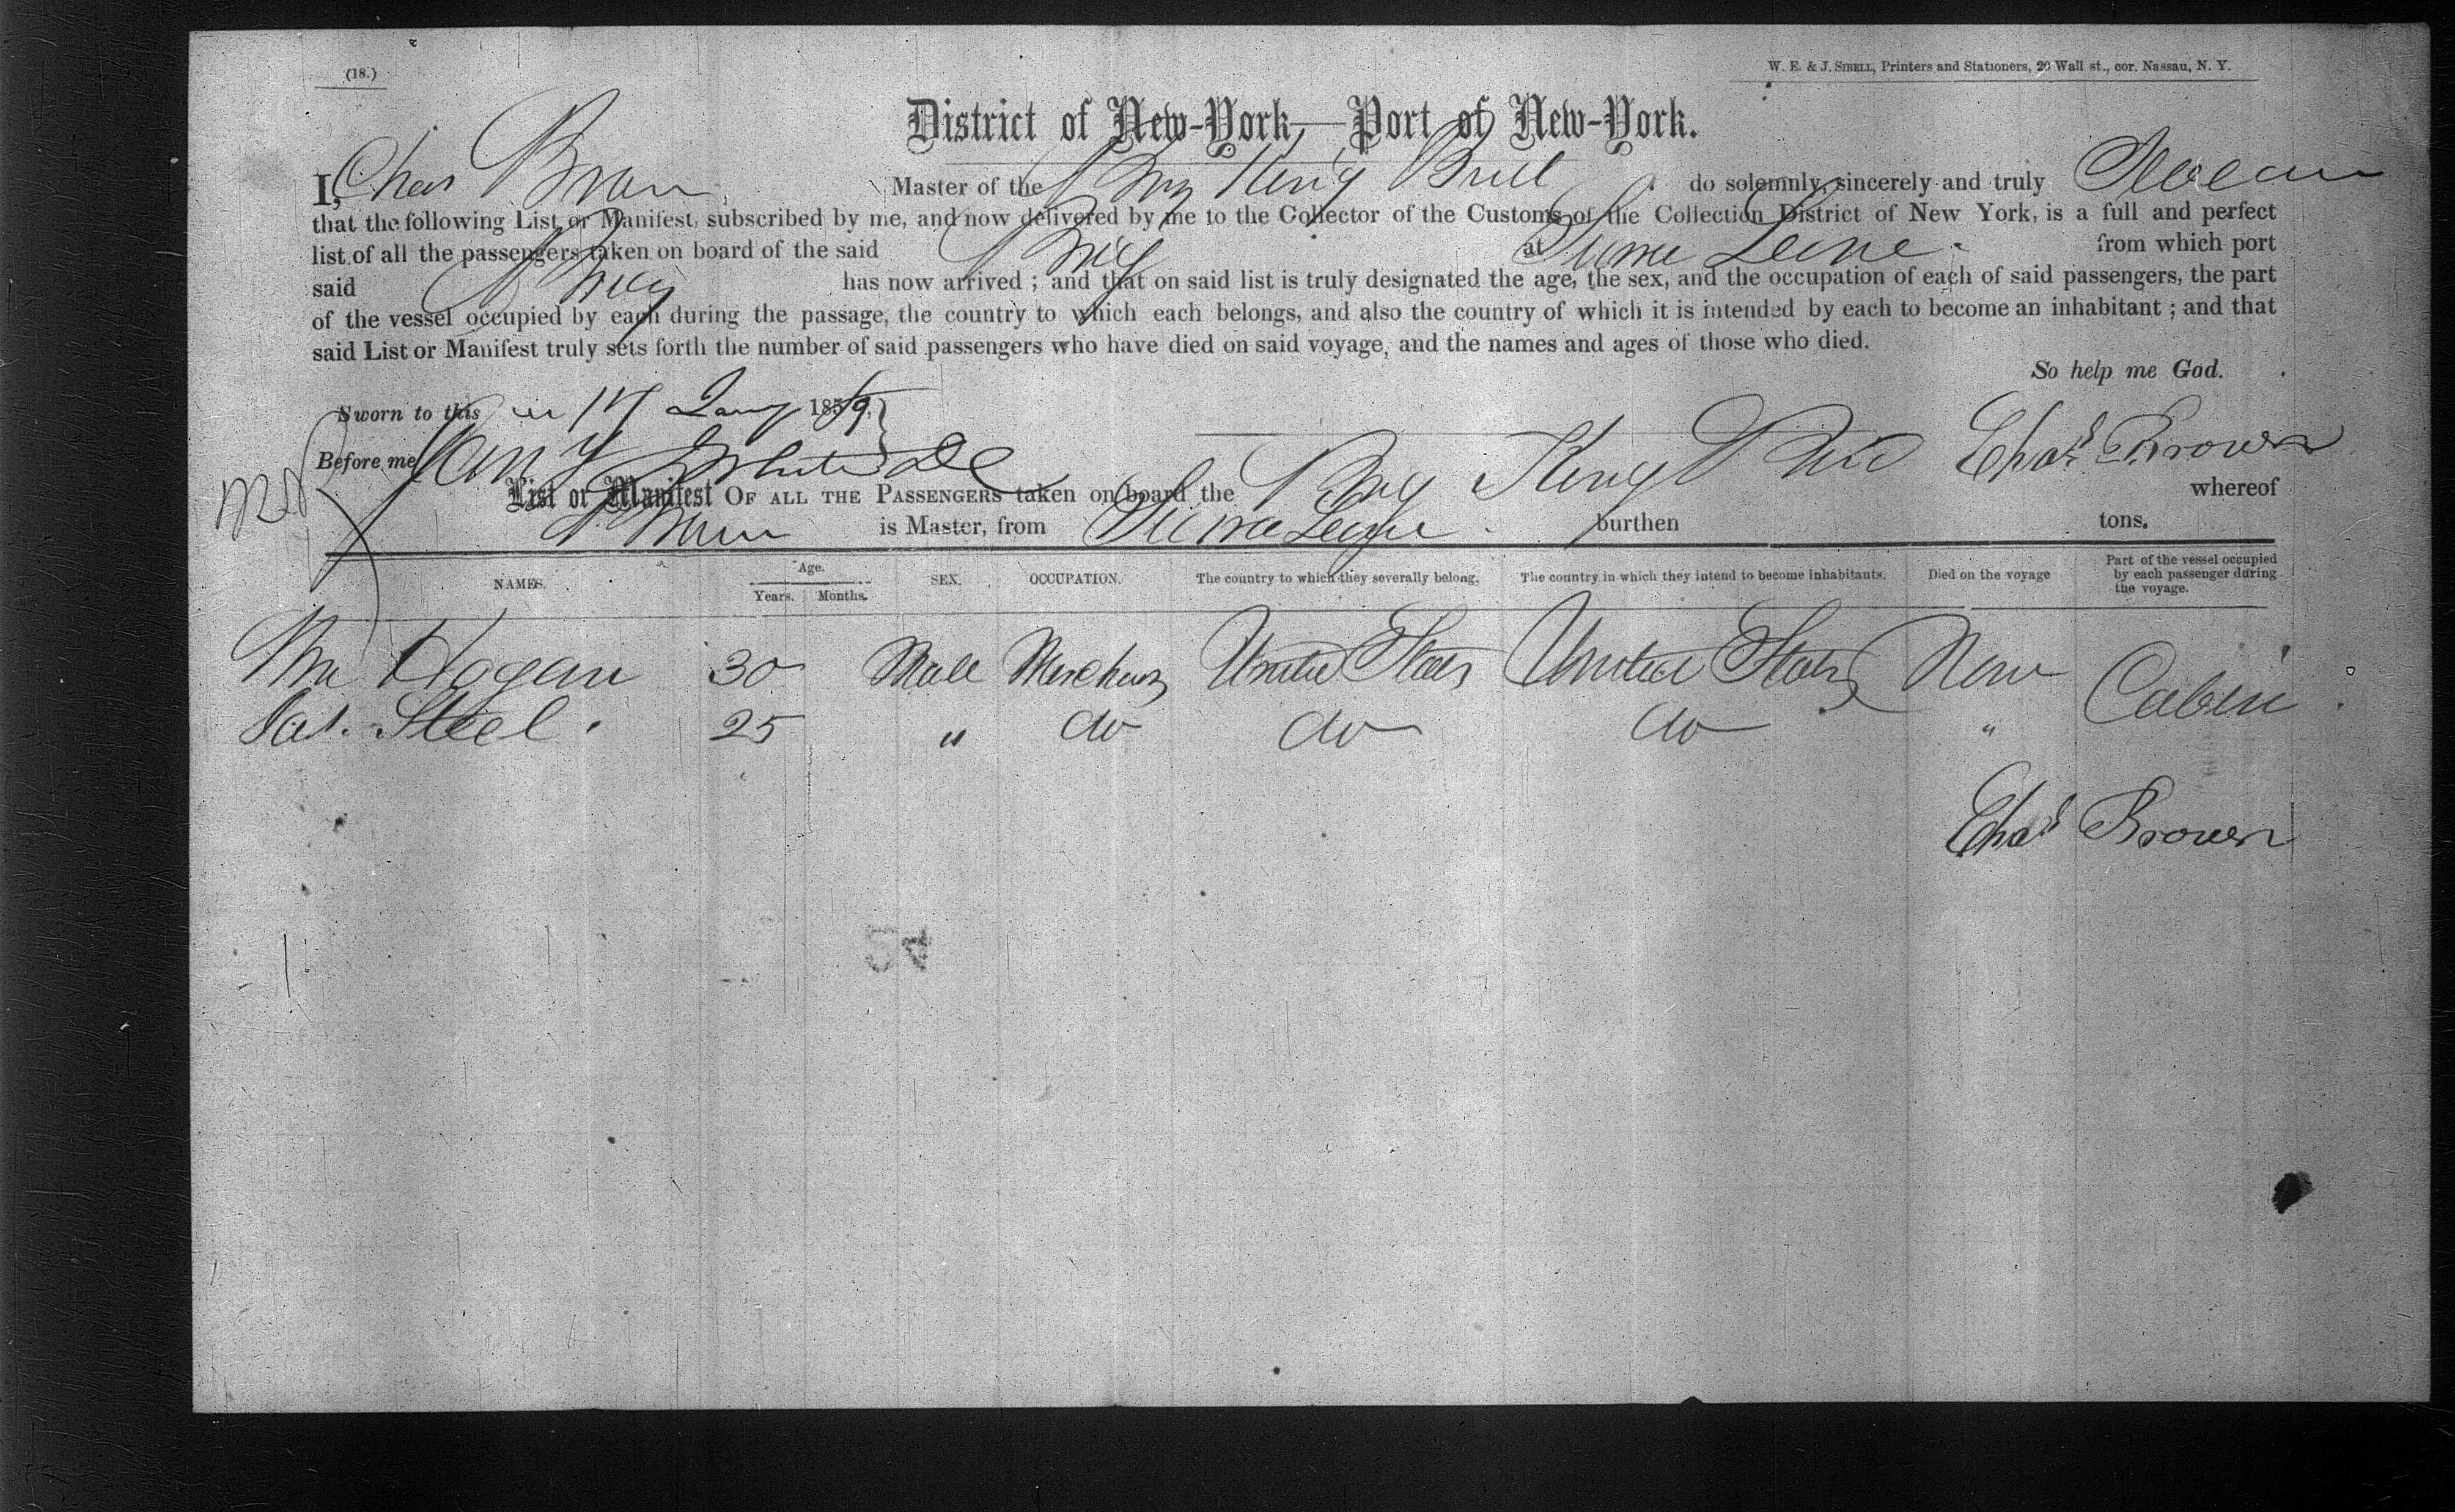 (18.)
W. E. & J. SIBELL, Printers and Stationers, 20 Wall st., cor. Nassau, N. Y.
District of New-York,—Port of New-York.
I, Chas Brown Master of the Brig King Brill do solemnly, sincerely and truly Swear
that the following List or Manifest, subscribed by me, and now delivered by me to the Collector of the Customs of the Collection District of New York, is a full and perfect
list of all the passengers taken on board of the said Brig at Sierra Leone from which port
said Brig has now arrived ; and that on said list is truly designated the age, the sex, and the occupation of each of said passengers, the part
of the vessel occupied by each during the passage, the country to which each belongs, and also the country of which it is intended by each to become an inhabitant ; and that
said List or Manifest truly sets forth the number of said passengers who have died on said voyage, and the names and ages of those who died.
So help me God.
Sworn to this 17 Jany 1859,
Before me Chas Brown
List or Manifest OF ALL THE PASSENGERS taken on board the Brig King whereof
Brown is Master, from Sierra Leone burthen tons.
NAMES. Age. Years. Months. SEX. OCCUPATION. The country to which they severally belong. The country in which they intend to become inhabitants. Died on the voyage Part of the vessel occupied by each passenger during the voyage.
Wm Hogan 30 Male Merchant United States United States None Cabin
Jas. Steel. 25 " do do do "
Chas Brown